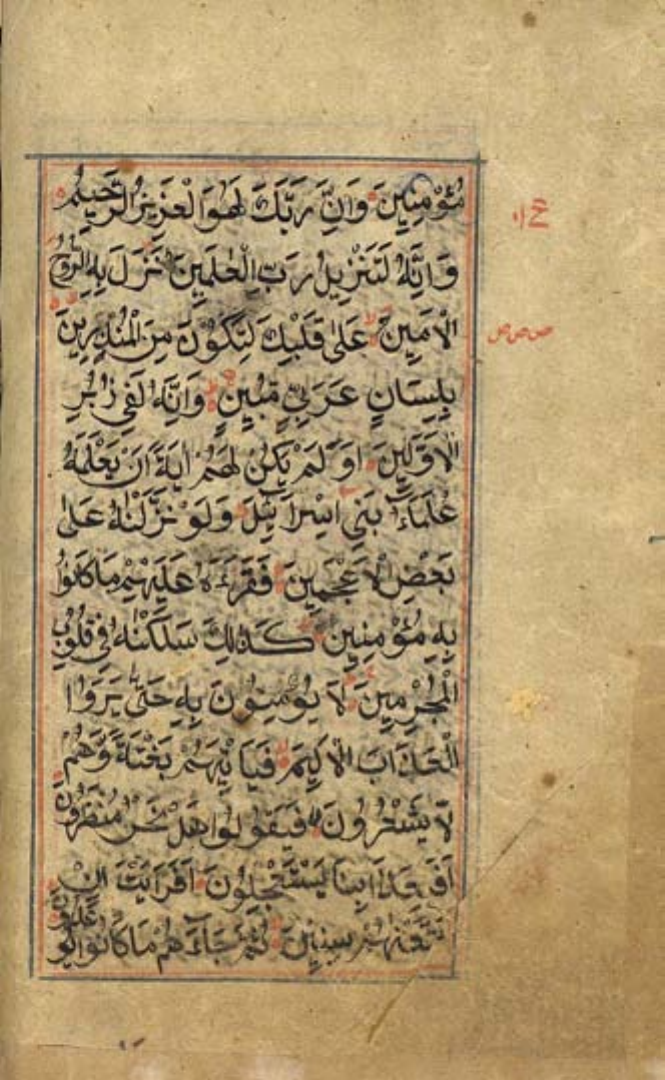 مُؤْمِنِينَ وَاِنَّ رَبَّكَ لَهُوَ الْعَزِيزُ الرَّحِيمُ
وَاِنَّهُ لَتَنْزِيلُ رَبِّ الْعٰلَمِينَ نَزَلَ بِهِ الرُّوحُ
الْاَمِينُ عَلٰى قَلْبِكَ لِتَكُوْنَ مِنَ الْمُنْذِرِينَ
بِلِسَانٍ عَرَبِيٍّ مُّبِينٍ وَاِنَّهُ لَفِي زُبُرِ
الْاَوَّلِينَ اَوَلَمْ يَكُنْ لَهُمْ اٰيَةً اَنْ يَعْلَمَهُ
عُلَمَاءُ بَنِي اِسْرَائِيلَ وَلَوْ نَزَّلْنٰهُ عَلٰى
بَعْضِ الْاَعْجَمِينَ فَقَرَءَهُ عَلَيْهِمْ مَا كَانُوا
بِهِ مُؤْمِنِينَ كَذٰلِكَ سَلَكْنٰهُ فِي قُلُوبِ
الْمُجْرِمِينَ لَا يُؤْمِنُونَ بِهِ حَتّٰى يَرَوُا
الْعَذَابَ الْاَلِيمَ فَيَأْتِيَهُمْ بَغْتَةً وَهُمْ
لَا يَشْعُرُونَ فَيَقُولُوا هَلْ نَحْنُ مُنْظَرُونَ
اَفَبِعَذَابِنَا يَسْتَعْجِلُونَ اَفَرَاَيْتَ اِنْ
مَتَّعْنٰهُمْ سِنِينَ ثُمَّ جَاءَهُمْ مَا كَانُوا يُوعَدُونَ
ص ص ص